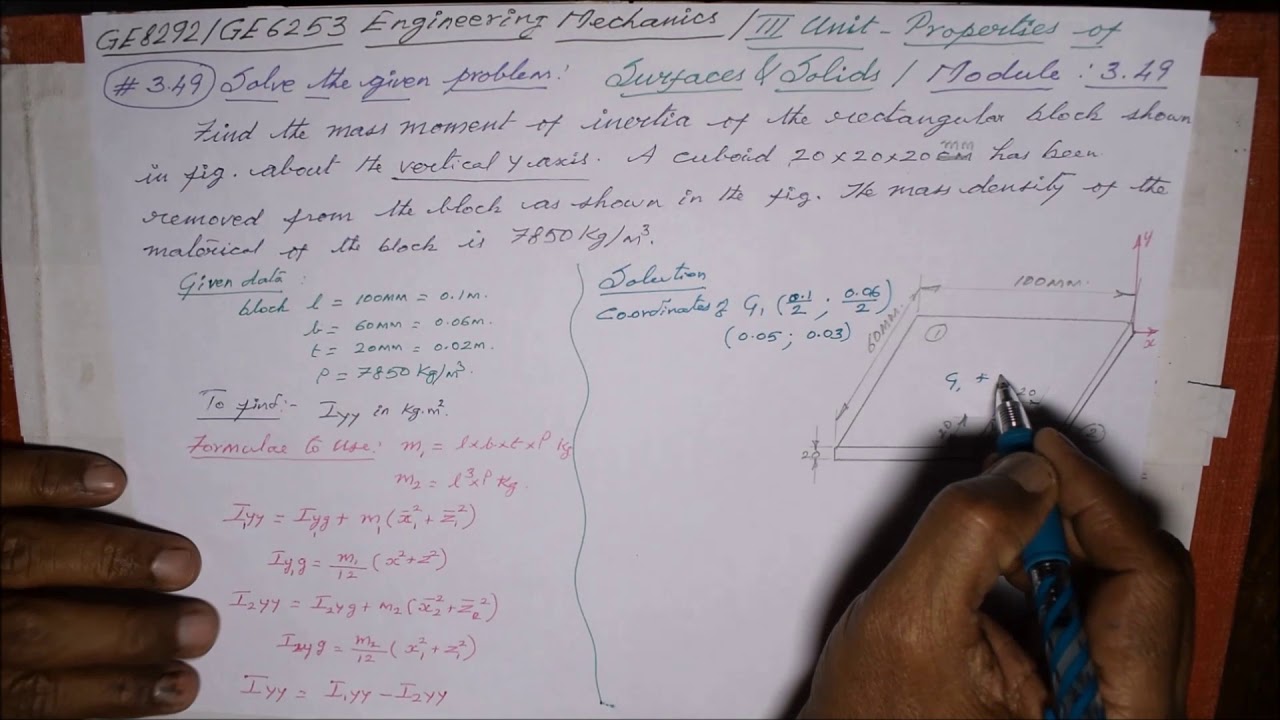 GE8292/GE6253 Engineering Mechanics / III Unit - Properties of
# 3.49 Solve the given problem: Surfaces & Solids / Module : 3.49
Find the mass moment of inertia of the rectangular block shown
in fig. about the vertical y axis. A cuboid 20 x 20 x 20 mm has been
removed from the block as shown in the fig. The mass density of the
material of the block is 7850 Kg/m³.
Given data :
block l = 100mm = 0.1m.
b = 60mm = 0.06m.
t = 20mm = 0.02m.
ρ = 7850 Kg/m³
To find:- Iyy in Kg.m².
Formulae to use: m₁ = l x b x t x ρ Kg
m₂ = l³ x ρ Kg.
I₁yy = Iyg + m₁(x̄₁² + z̄₁²)
Iy₁g = m₁/12 (x² + z²)
I₂yy = I₂yg + m₂(x̄₂² + z̄₂²)
I₂yg = m₂/12 (x₁² + z₁²)
Iyy = I₁yy - I₂yy
Solution
Coordinates of G₁ (0.1/2 ; 0.06/2)
(0.05 ; 0.03)
y
100mm.
x
60mm.
①
G₁ +
20
20
②
20